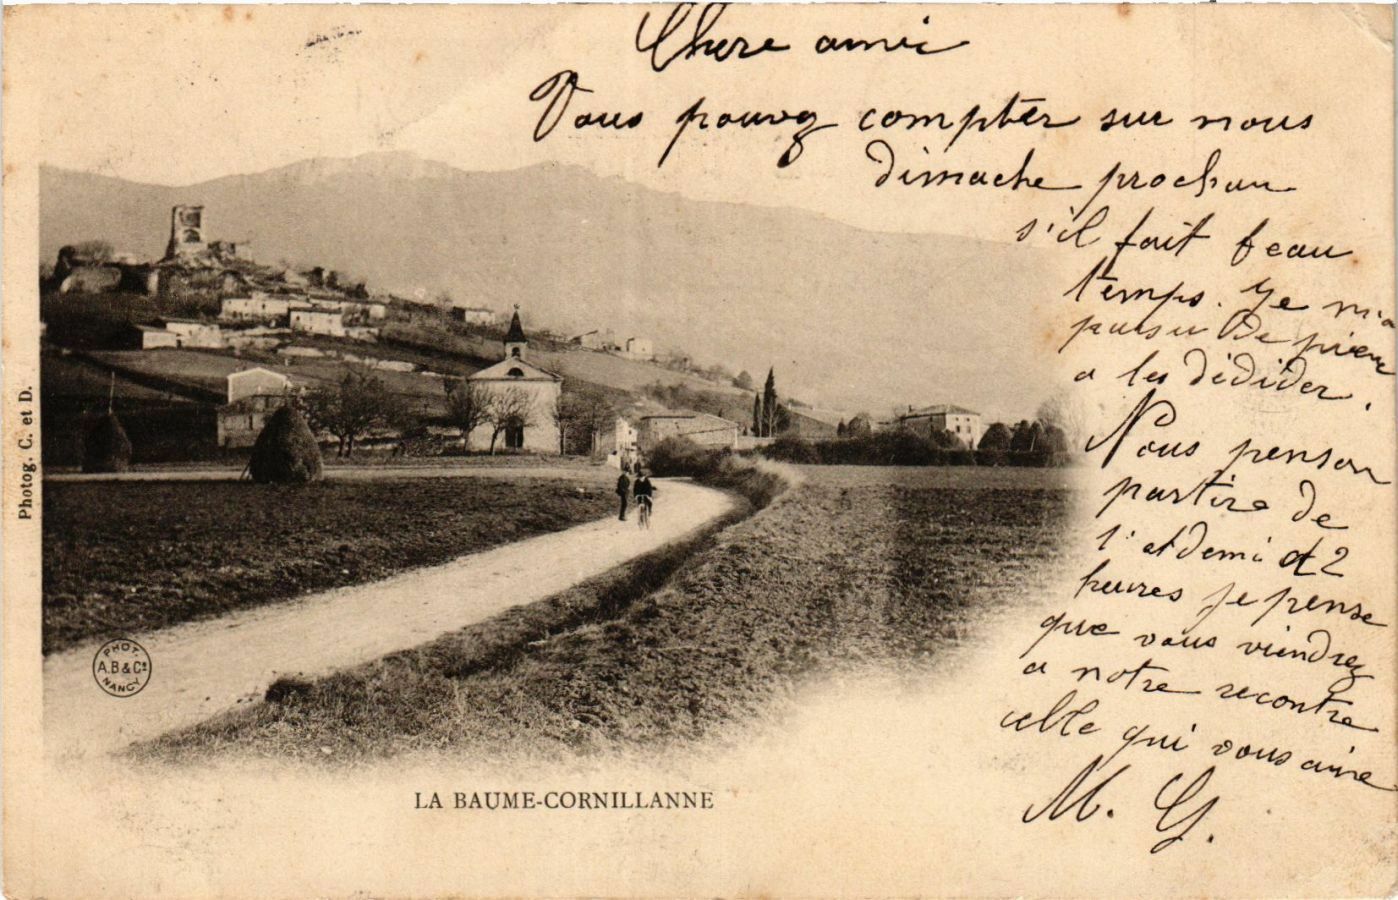 Chere amie
Vous pouvez compter sur nous
dimache prochan
s'il fait beau
temps. Je
de
a les dédider.
Nous penson
partire de
1 et demi 2
heures je pense
que vous viendrez
a notre recontre
celle qui vous aime
M. G.
Photog. C. et D.
PHOT.
A.B & Cie
NANCY
LA BAUME-CORNILLANNE